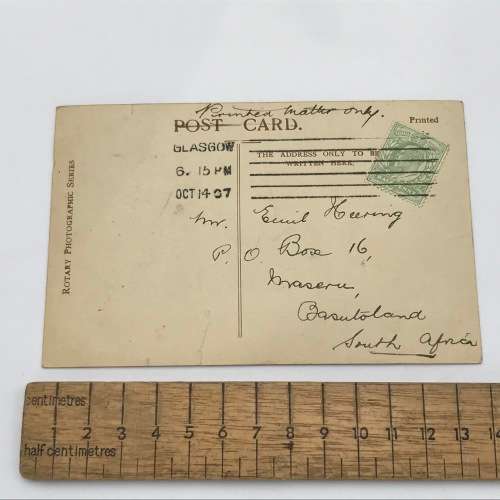 Printed matter only.
POST CARD.
Printed
GLASGOW
6. 15 PM
OCT 14 07
THE ADDRESS ONLY TO BE
WRITTEN HERE.
ROTARY PHOTOGRAPHIC SERIES
Mr. Emil Heering
P. O. Box 16,
Maseru,
Basutoland
South Africa
centimetres
1 2 3 4 5 6 7 8 9 10 11 12 13 14
half centimetres